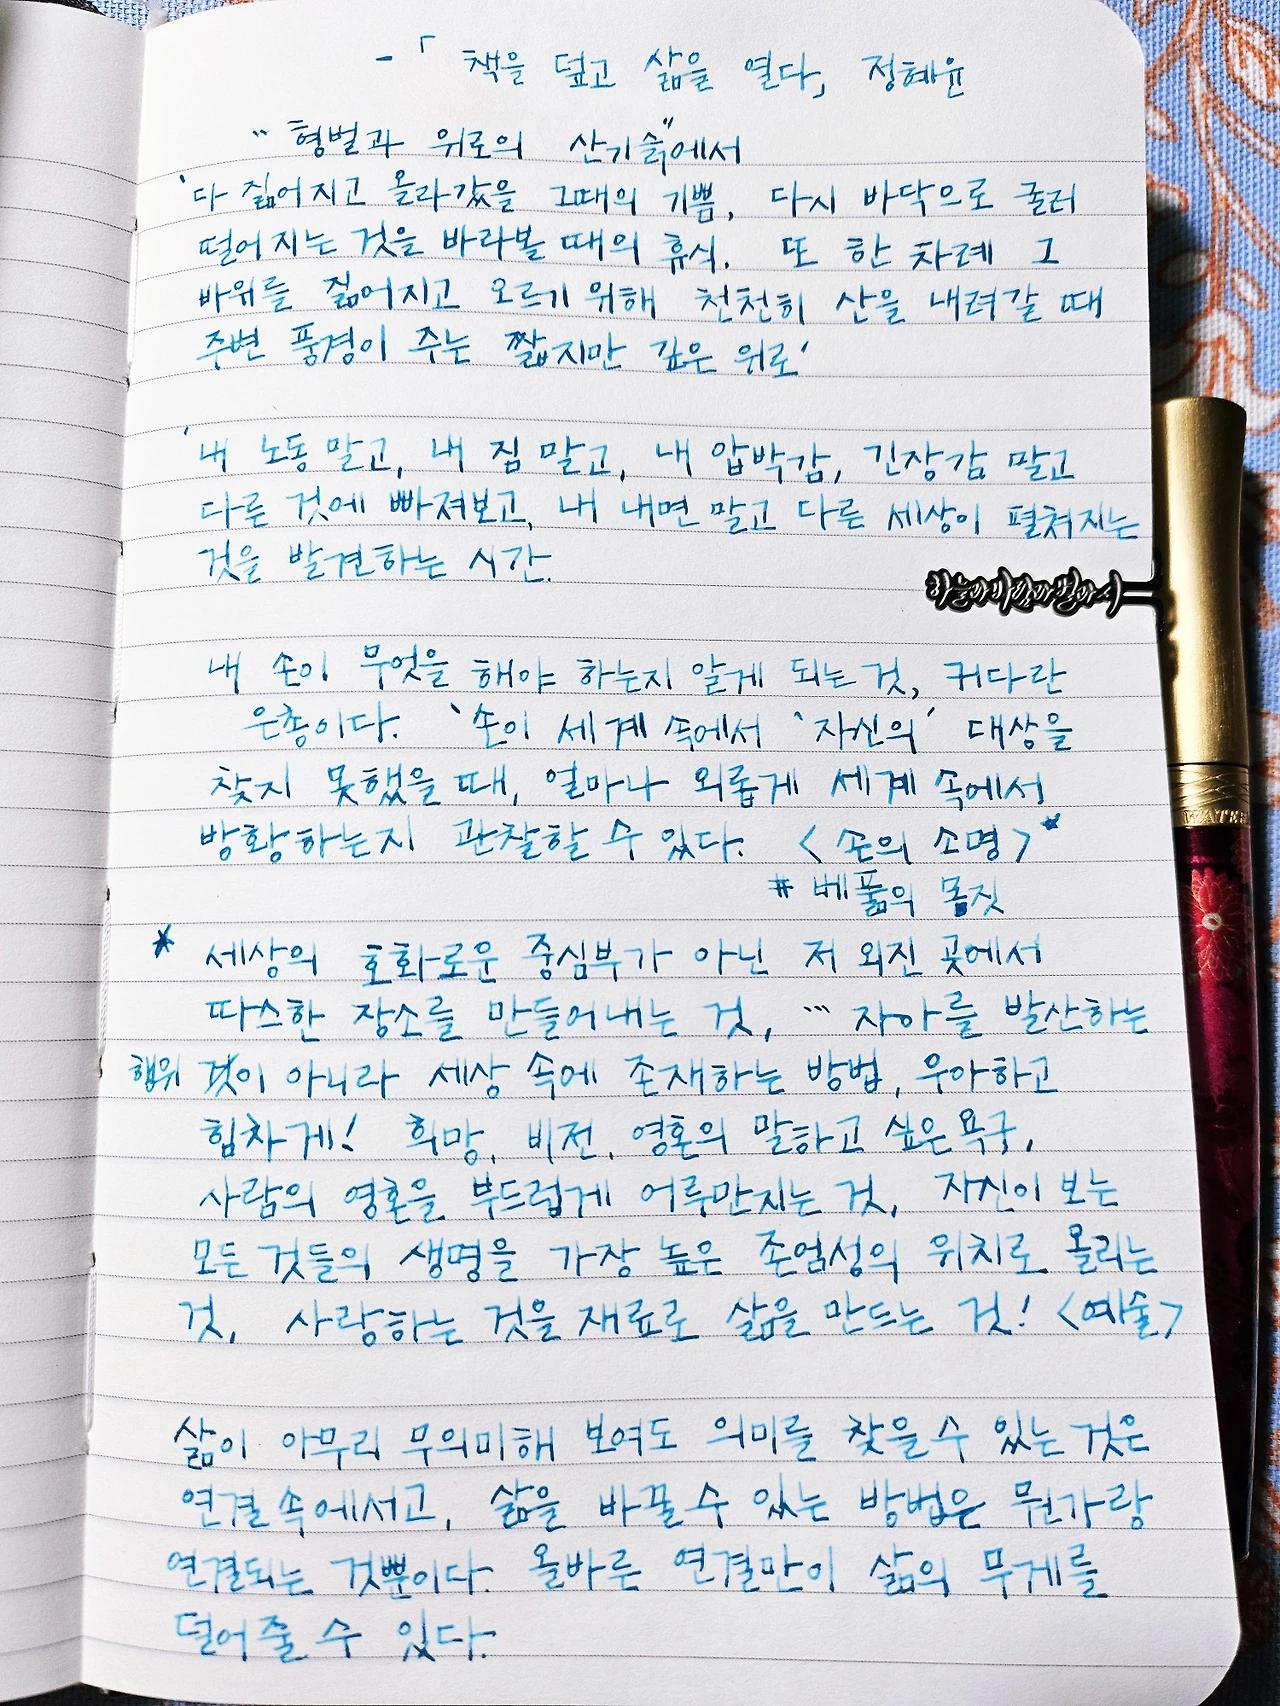 -「 책을 덮고 삶을 열다」 정혜윤
"형벌과 위로의 산기슭"에서
'다 짊어지고 올라갔을 그때의 기쁨, 다시 바닥으로 굴러
떨어지는 것을 바라볼 때의 휴식. 또 한 차례 그
바위를 짊어지고 오르기 위해 천천히 산을 내려갈 때
주변 풍경이 주는 짧지만 깊은 위로'
'내 노동 말고, 내 짐 말고, 내 압박감, 긴장감 말고
다른 것에 빠져보고, 내 내면 말고 다른 세상이 펼쳐지는
것을 발견하는 시간.
하늘과바람과별과시
내 손이 무엇을 해야 하는지 알게 되는 것, 커다란
은총이다. '손이 세계 속에서 '자신의' 대상을
찾지 못했을 때, 얼마나 외롭게 세계 속에서
방황하는지 관찰할 수 있다. <손의 소명>*
# 베풂의 몸짓
* 세상의 호화로운 중심부가 아닌 저 외진 곳에서
따스한 장소를 만들어내는 것, … 자아를 발산하는
행위 것이 아니라 세상 속에 존재하는 방법, 우아하고
힘차게! 희망, 비전, 영혼의 말하고 싶은 욕구,
사람의 영혼을 부드럽게 어루만지는 것, 자신이 보는
모든 것들의 생명을 가장 높은 존엄성의 위치로 올리는
것, 사랑하는 것을 재료로 삶을 만드는 것! <예술>
삶이 아무리 무의미해 보여도 의미를 찾을 수 있는 것은
연결 속에서고, 삶을 바꿀 수 있는 방법은 뭔가랑
연결되는 것뿐이다. 올바른 연결만이 삶의 무게를
덜어줄 수 있다.